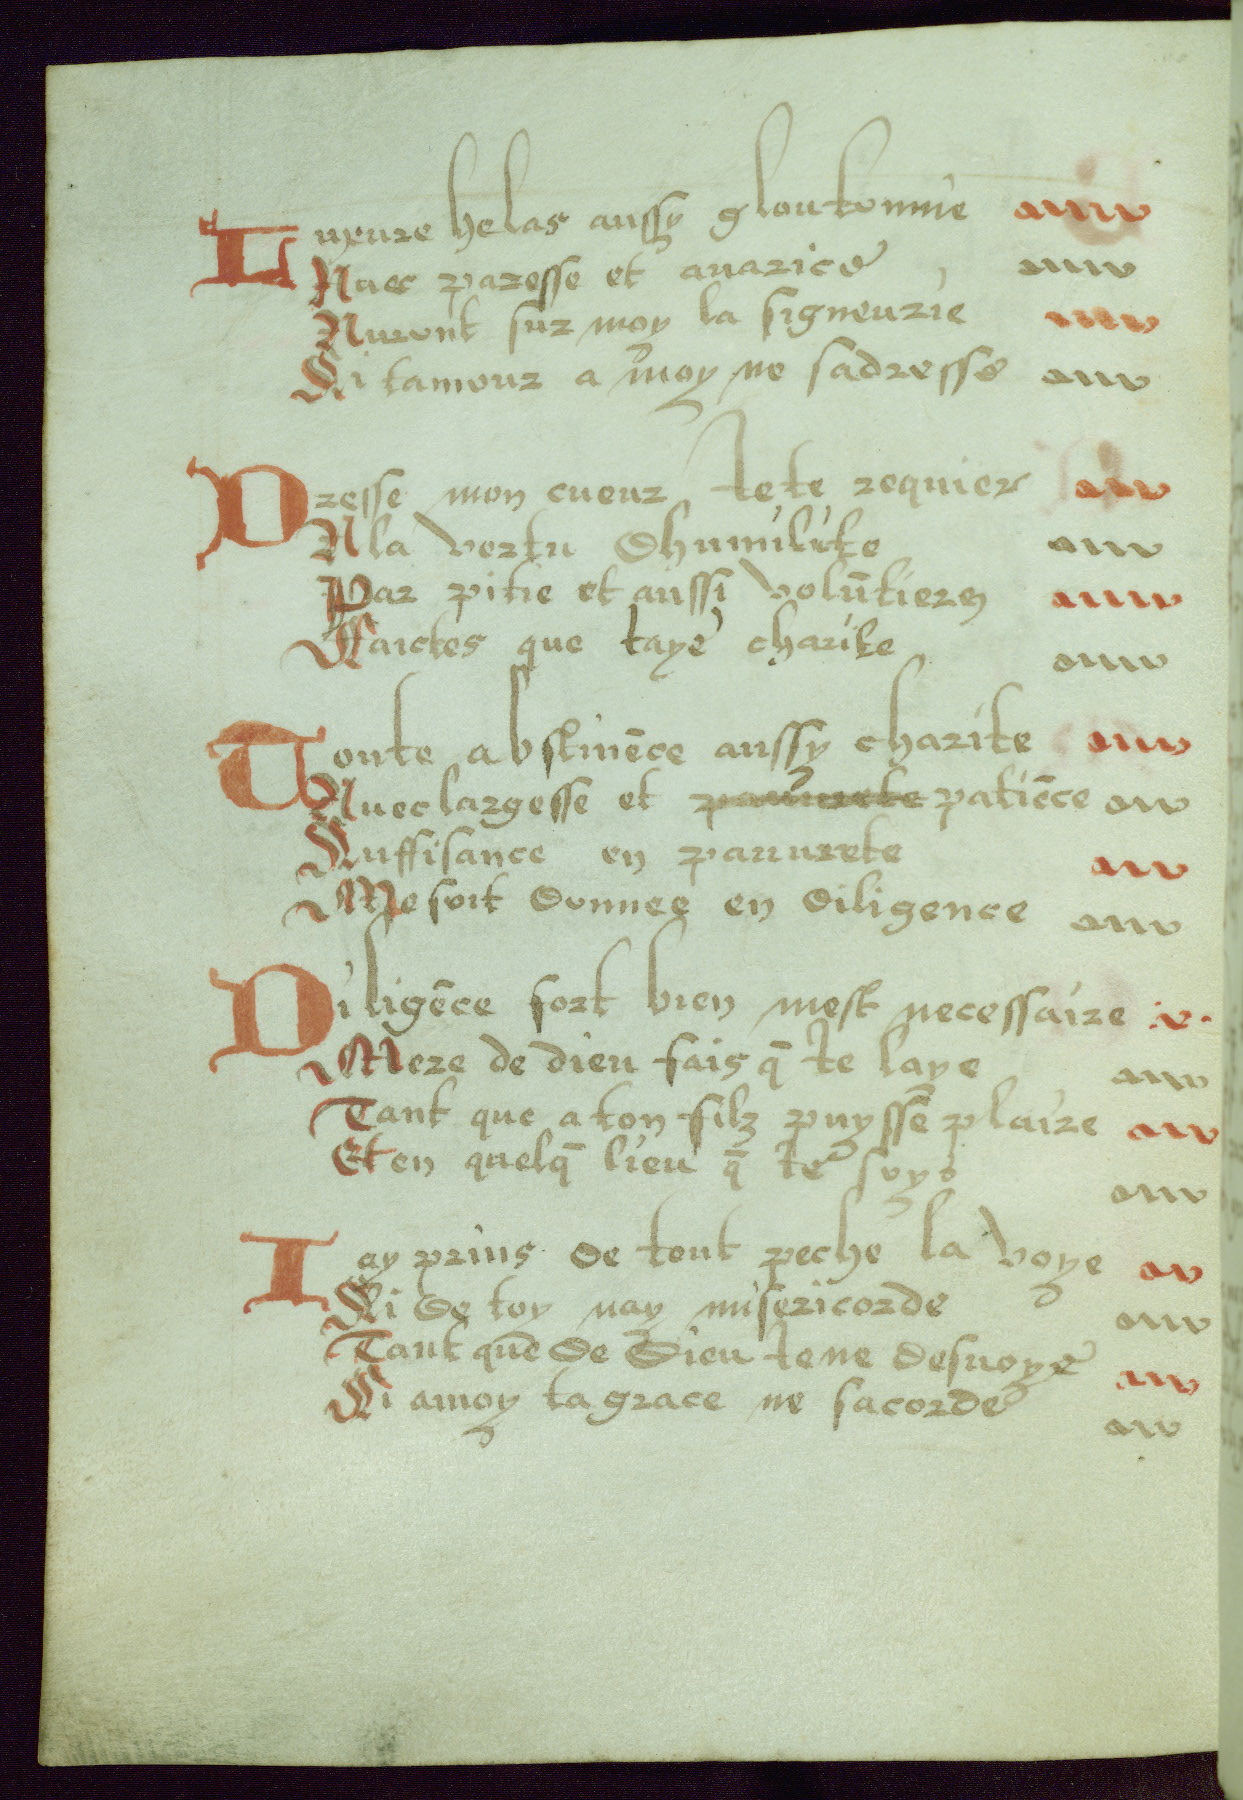 Luxure helas aussy gloutonnie
Auec paresse et auarice
Auront sur moy la signeurie
Si tamour a moy ne sadresse
Dresse mon cueur Ie te requier
A la vertu dhumilite
Par pitie et aussi volūtiers
Faictes que iaye charite
Toute abstinēce aussy charite
Auec largesse et pauurete patiēce
Suffisance en pauurete
Me soit donnee en diligence
Diligēce fort bien mest necessaire
Mere de dieu fais q̄ Ie laye
Tant que a ton filz puyssē plaire
Et en quelq̄ lieu q̄ Ie soye
Iay prins de tout peche la voye
Si de toy nay misericorde
Tant que de dieu Ie ne desuoye
Si a moy ta grace ne sacorde